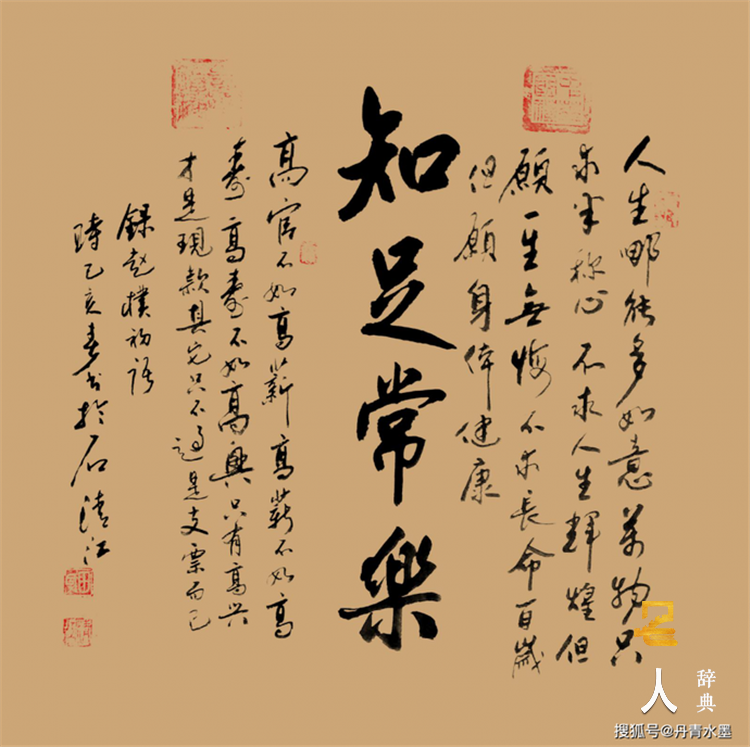 人生哪能多如意萬物只
求半称心不求人生輝煌但
願一生無悔不求長命百歲
但願身体健康
知足常樂
高官不如高薪高薪不如高
寿高寿不如高興只有高兴
才是現款其它只不过是支票而已
録趙樸初語
時乙亥春书於石江
人
辞典
搜狐号@丹青水墨